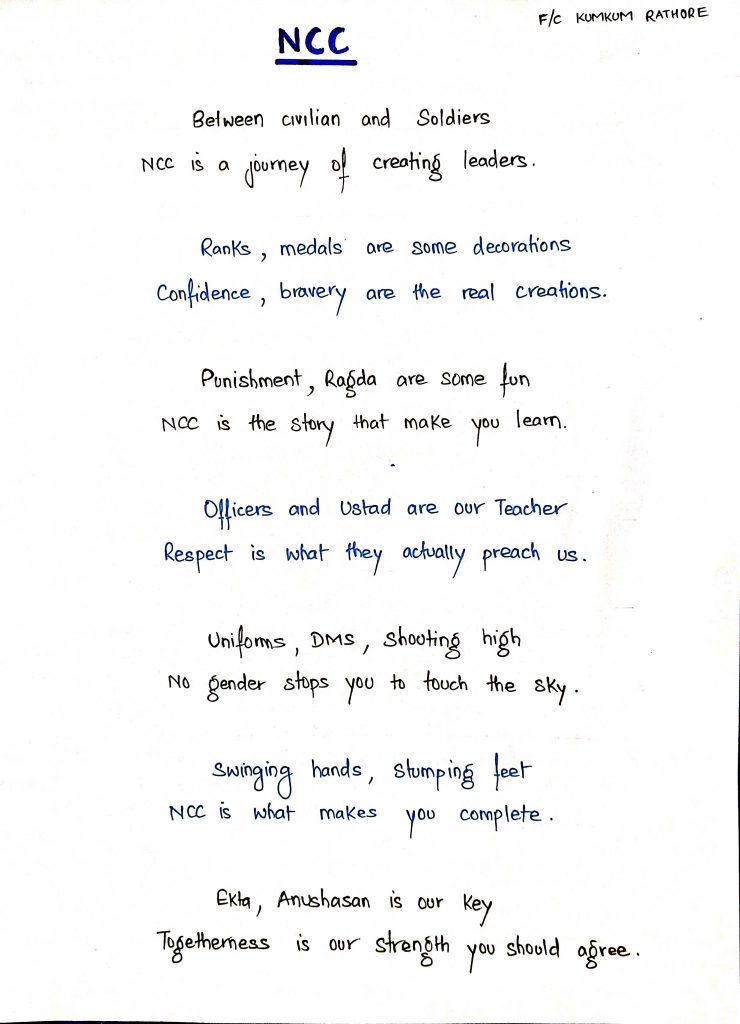 F/C KUMKUM RATHORE
NCC
Between civilian and Soldiers
NCC is a journey of creating leaders.
Ranks, medals are some decorations
Confidence, bravery are the real creations.
Punishment, Ragda are some fun
NCC is the story that make you learn.
Officers and Ustad are our Teacher
Respect is what they actually preach us.
Uniforms, DMS, Shooting high
No gender stops you to touch the sky.
Swinging hands, Stumping feet
NCC is what makes you complete.
Ekta, Anushasan is our key
Togetherness is our strength you should agree.